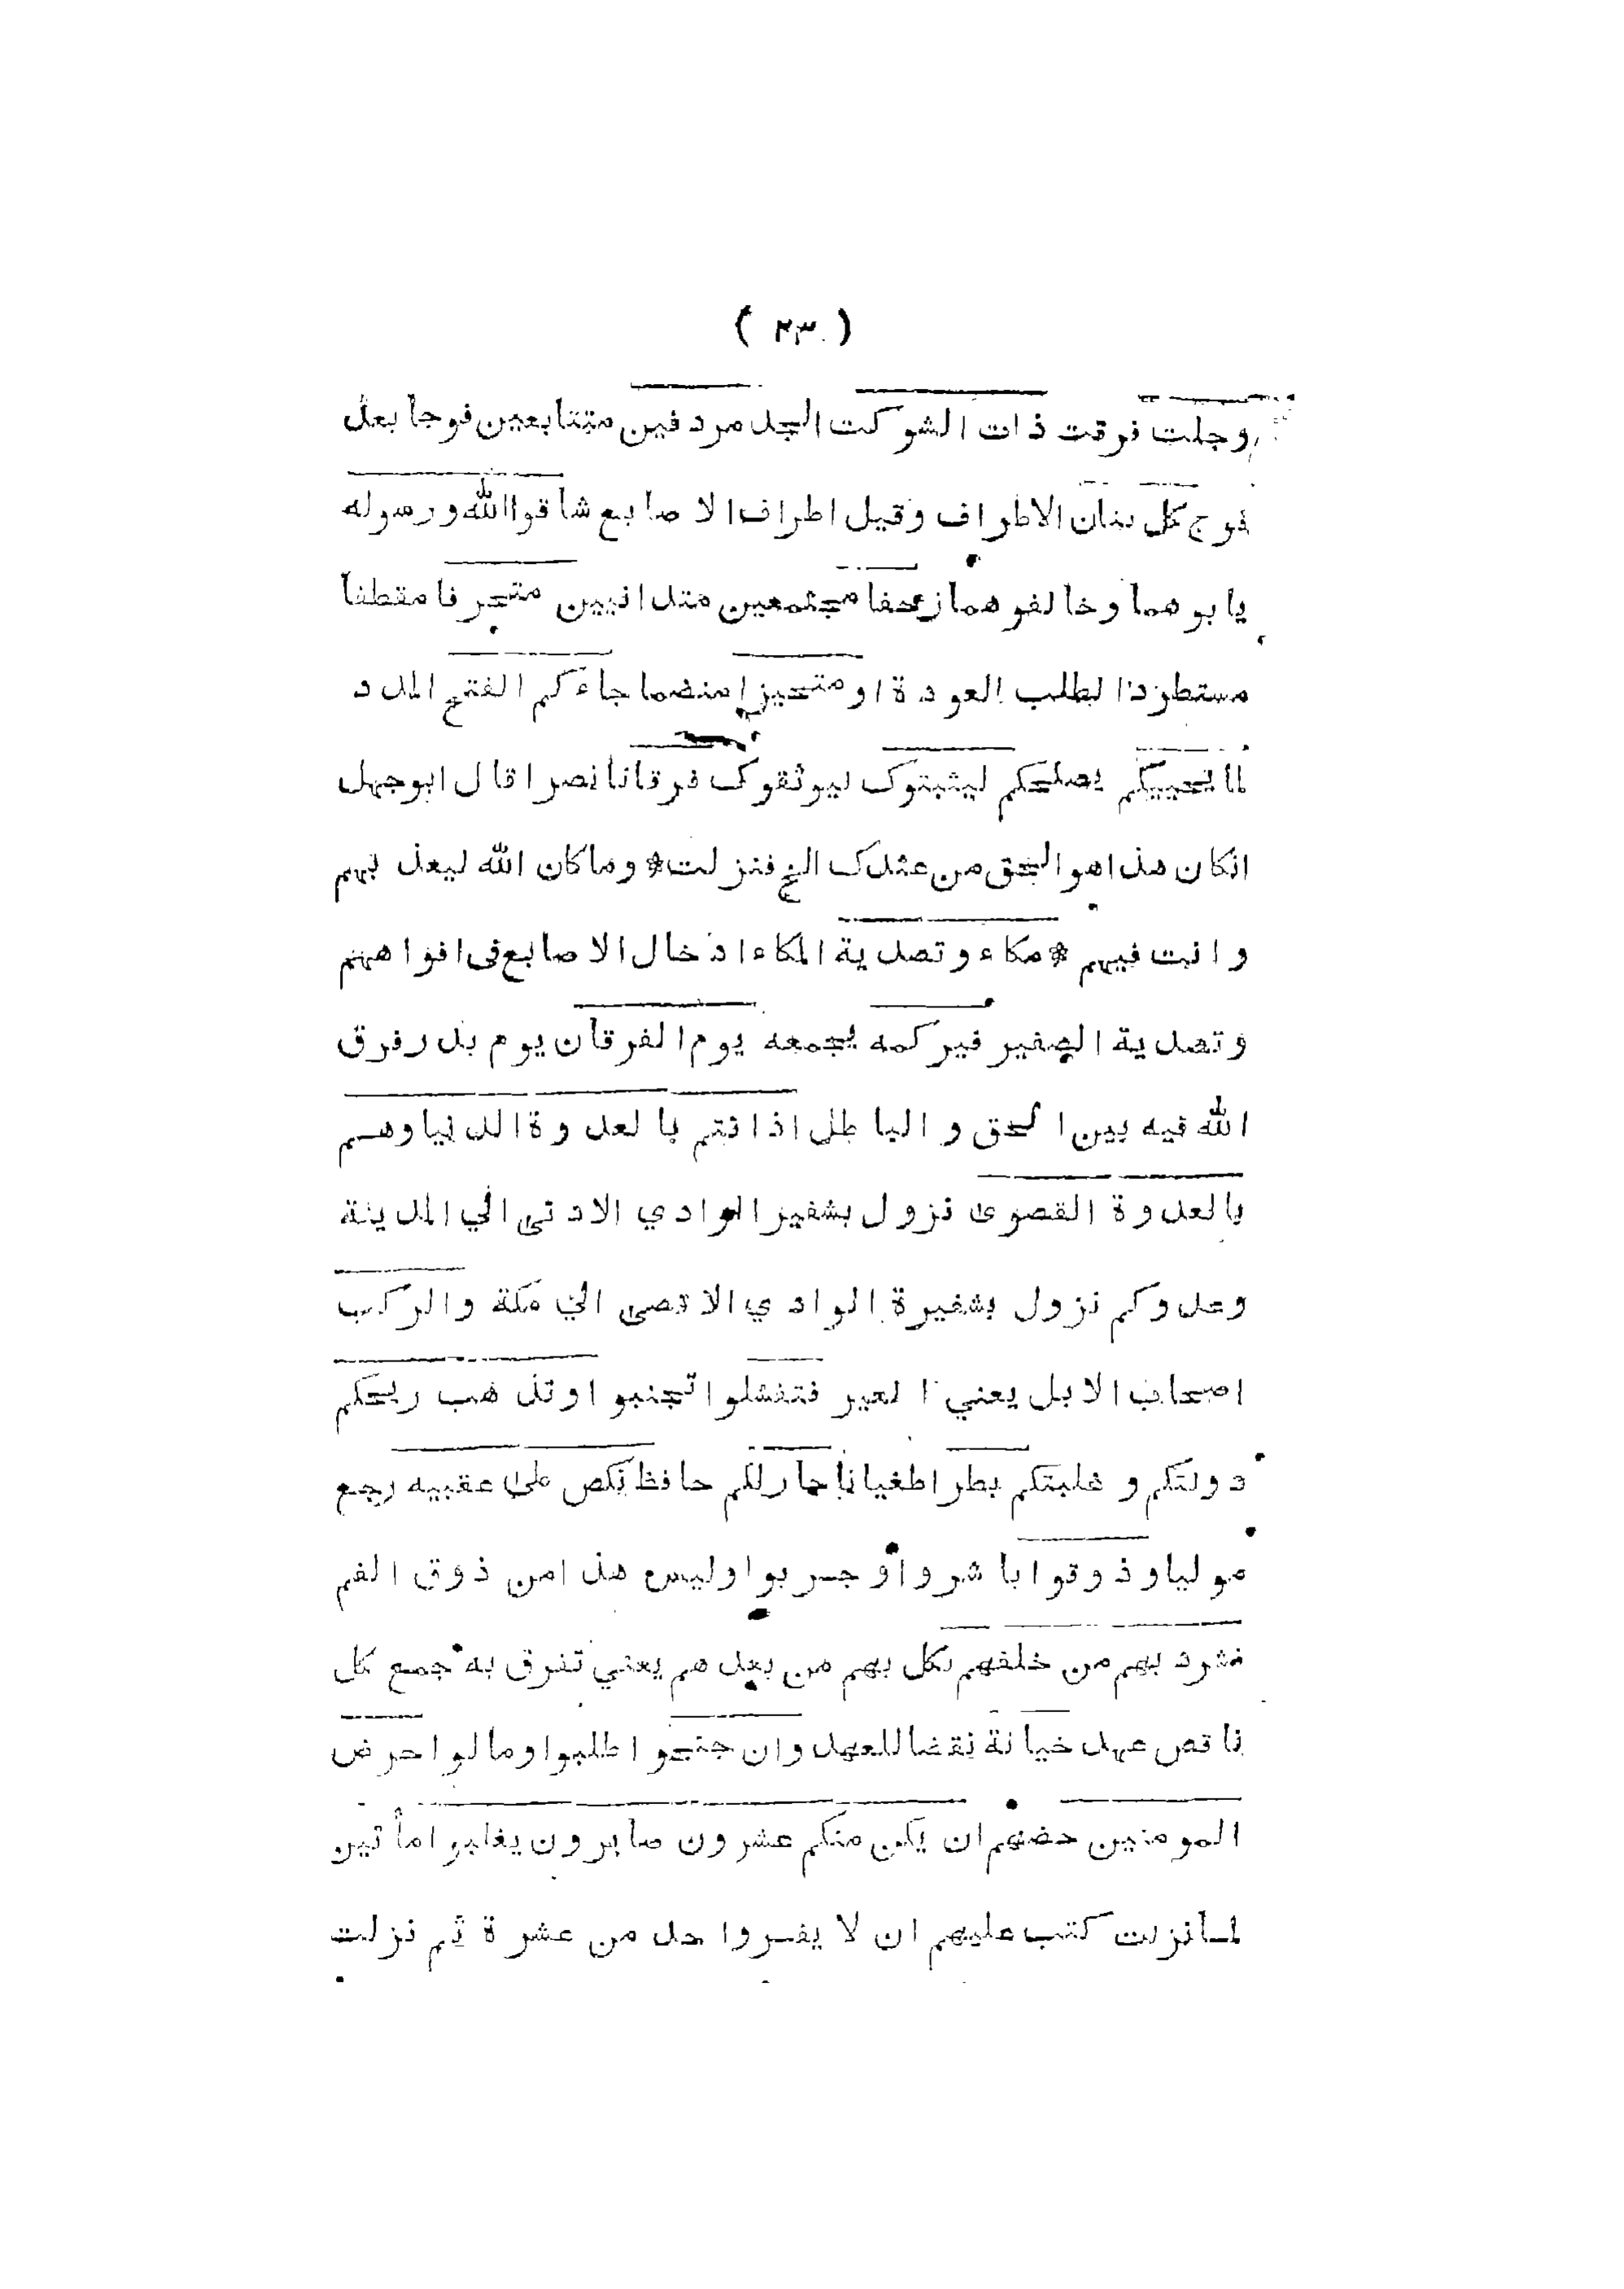 ( ۲۳ )
وجلت فرقت ذات الشوكت الحد مردفين متتابعين فوجا بعد
فوج كل بنان الاطراف وقيل اطراف الاصابع شاقوا الله ورسوله
يا بوهما وخالفوهما زحفا مجتمعين متدانيين متحرفا مقطفا
مستطردا لطلب العودة او متحيزا منضما جاءكم الفتح المدد
لما يحييكم يصلحكم ليثبتوك ليوثقوك فرقانا نصرا قال ابوجهل
انكان هذا هو الحق من عندك الخ فنزلت * وما كان الله ليعذبهم
وانت فيهم * مكاء وتصدية المكاء ادخال الاصابع فى افواههم
وتصدية الصفير فيركمه يجمعه يوم الفرقان يوم بدر فرق
الله فيه بين الحق والباطل اذ انتم بالعدوة الدنيا وهم
بالعدوة القصوى نزول بشفير الوادي الادنى الي المدينة
وعدوكم نزول بشفيرة الوادي الاقصى الي مكة والركب
اصحاب الابل يعني العير فتفشلوا تجنبوا وتذهب ريحكم
دولتكم وغلبتكم بطرا طغيانا جار لكم حافظ نكص على عقبيه رجع
موليا وذوقوا باشروا وجربوا وليس هذا من ذوق الفم
فشرد بهم من خلفهم نكل بهم من بعدهم يعني تفرق به جمع كل
ناقص عهد خيانة نقضا للعهد وان جنحوا طلبوا ومالوا حرض
المومنين حضهم ان يكن منكم عشرون صابرون يغلبوا مأتين
لما نزلت كتب عليهم ان لا يفروا حد من عشرة ثم نزلت